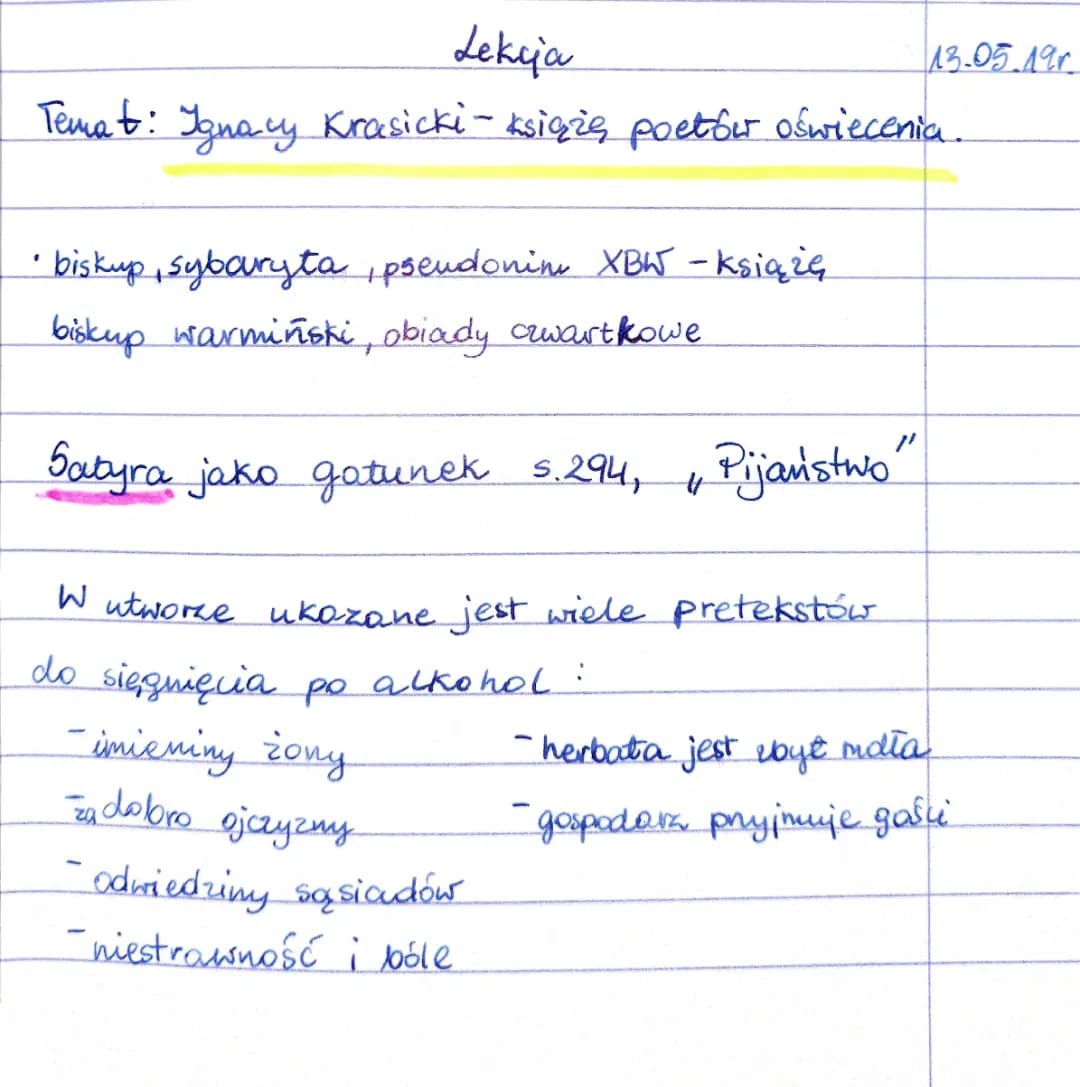 Lekcja
13.05.19r.
Temat: Ignacy Krasicki - książę poetów oświecenia.
• biskup, sybaryta, pseudonim XBW - książę
biskup warmiński, obiady czwartkowe
Satyra jako gatunek s.294, „Pijaństwo”
W utworze ukazane jest wiele pretekstów
do sięgnięcia po alkohol :
- imieniny żony
- herbata jest zbyt mdła
- za dobro ojczyzny
- gospodarz przyjmuje gości
- odwiedziny sąsiadów
- niestrawność i bóle